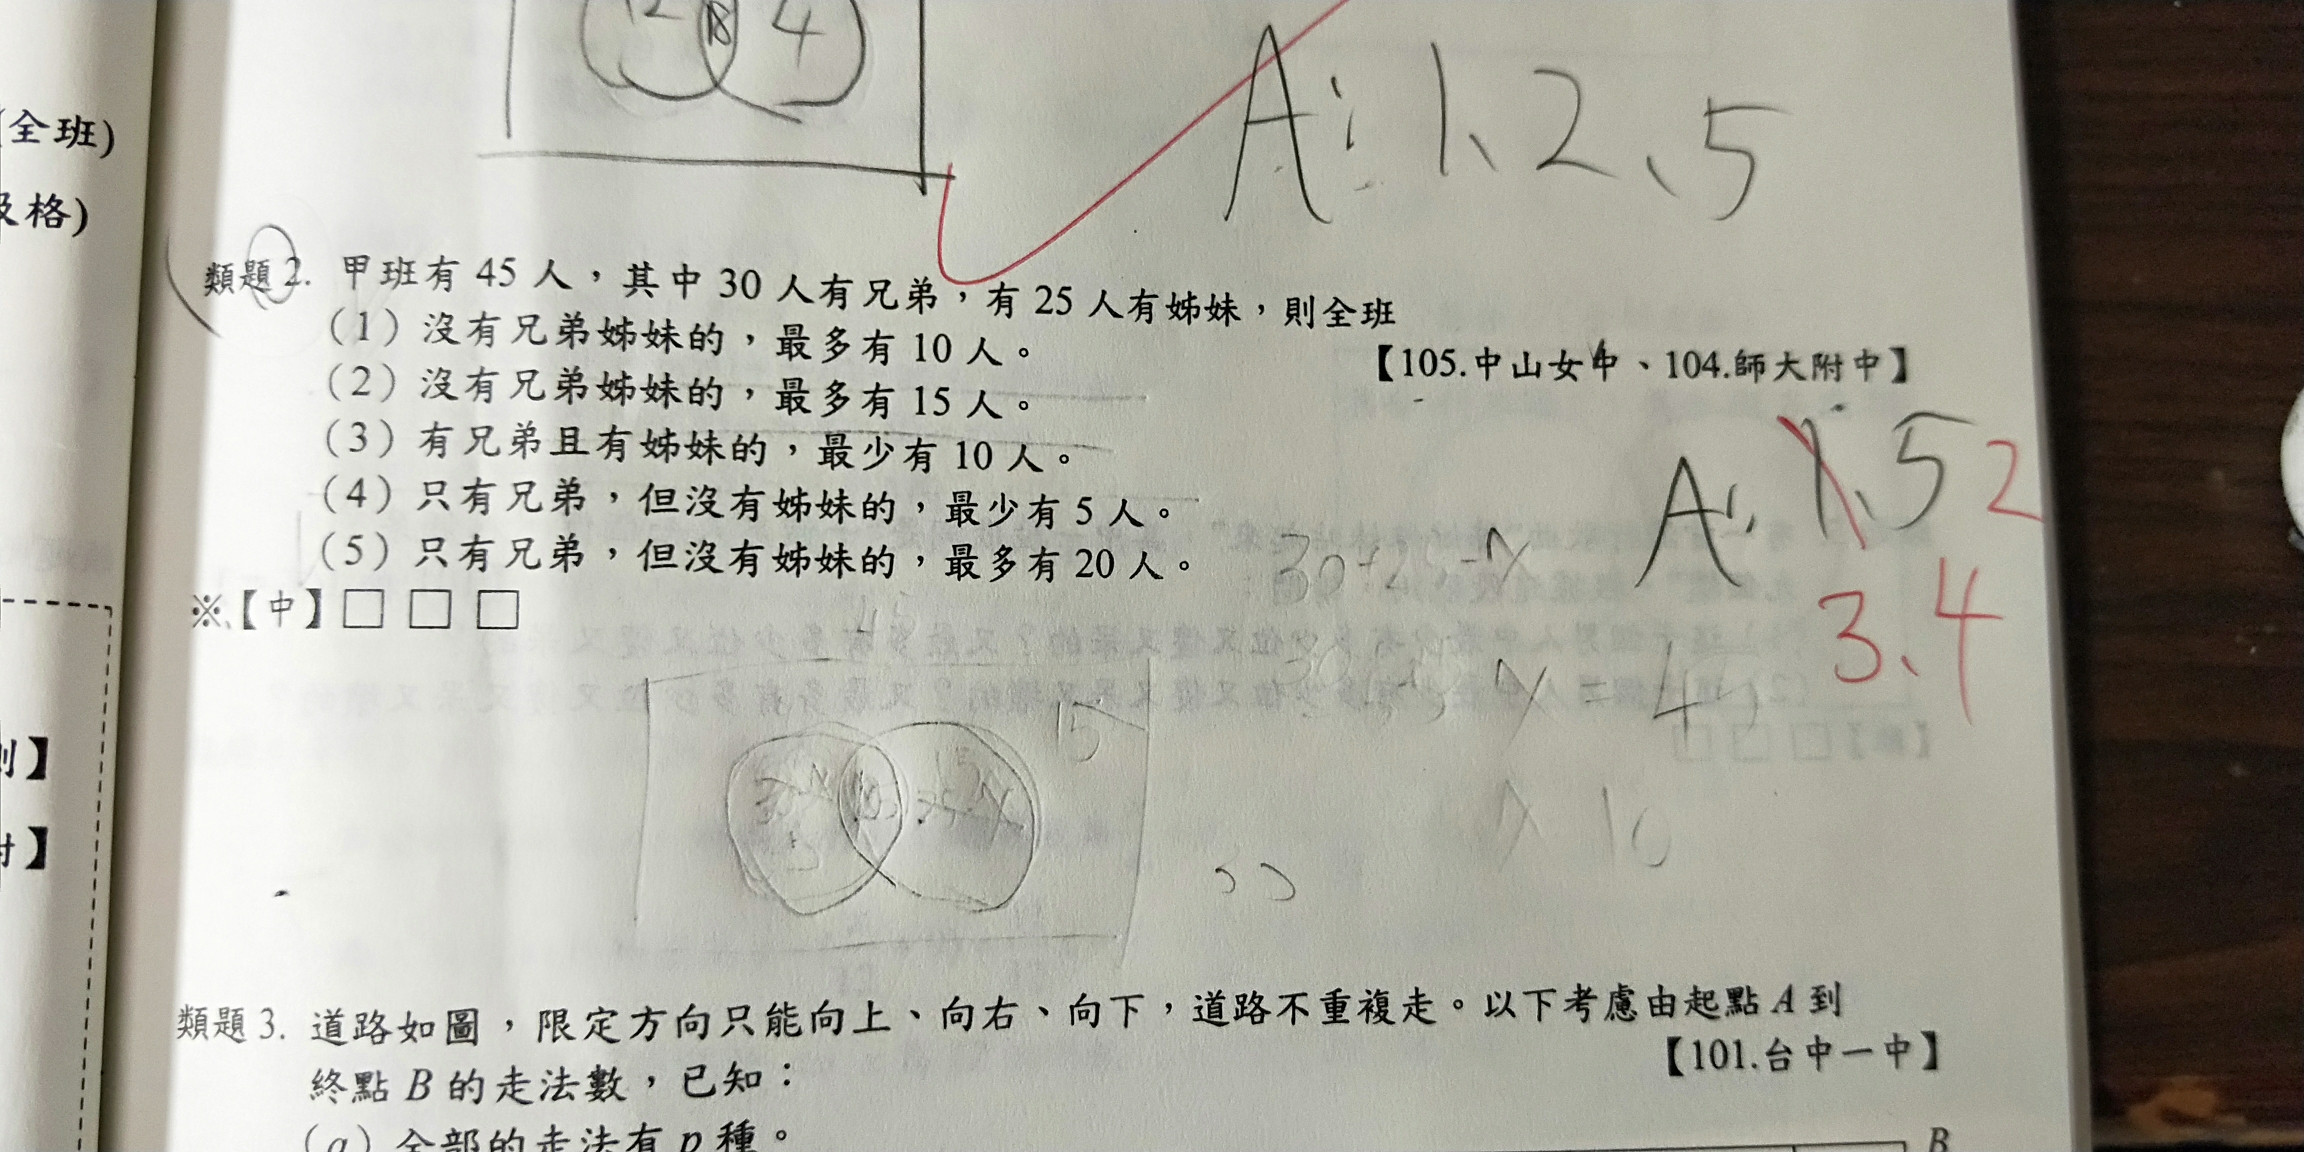 12 18 4
A: 1、2、5
(全班)
及格)
類題 2. 甲班有 45 人，其中 30 人有兄弟，有 25 人有姊妹，則全班
(1) 沒有兄弟姊妹的，最多有 10 人。
【105.中山女中、104.師大附中】
(2) 沒有兄弟姊妹的，最多有 15 人。
(3) 有兄弟且有姊妹的，最少有 10 人。
(4) 只有兄弟，但沒有姊妹的，最少有 5 人。
(5) 只有兄弟，但沒有姊妹的，最多有 20 人。
A: 1、5 2
3、4
※【中】□ □ □
45
15
x 10
類題 3. 道路如圖，限定方向只能向上、向右、向下，道路不重複走。以下考慮由起點 A 到
【101.台中一中】
終點 B 的走法數，已知：
(a) 全部的走法有 p 種。
B